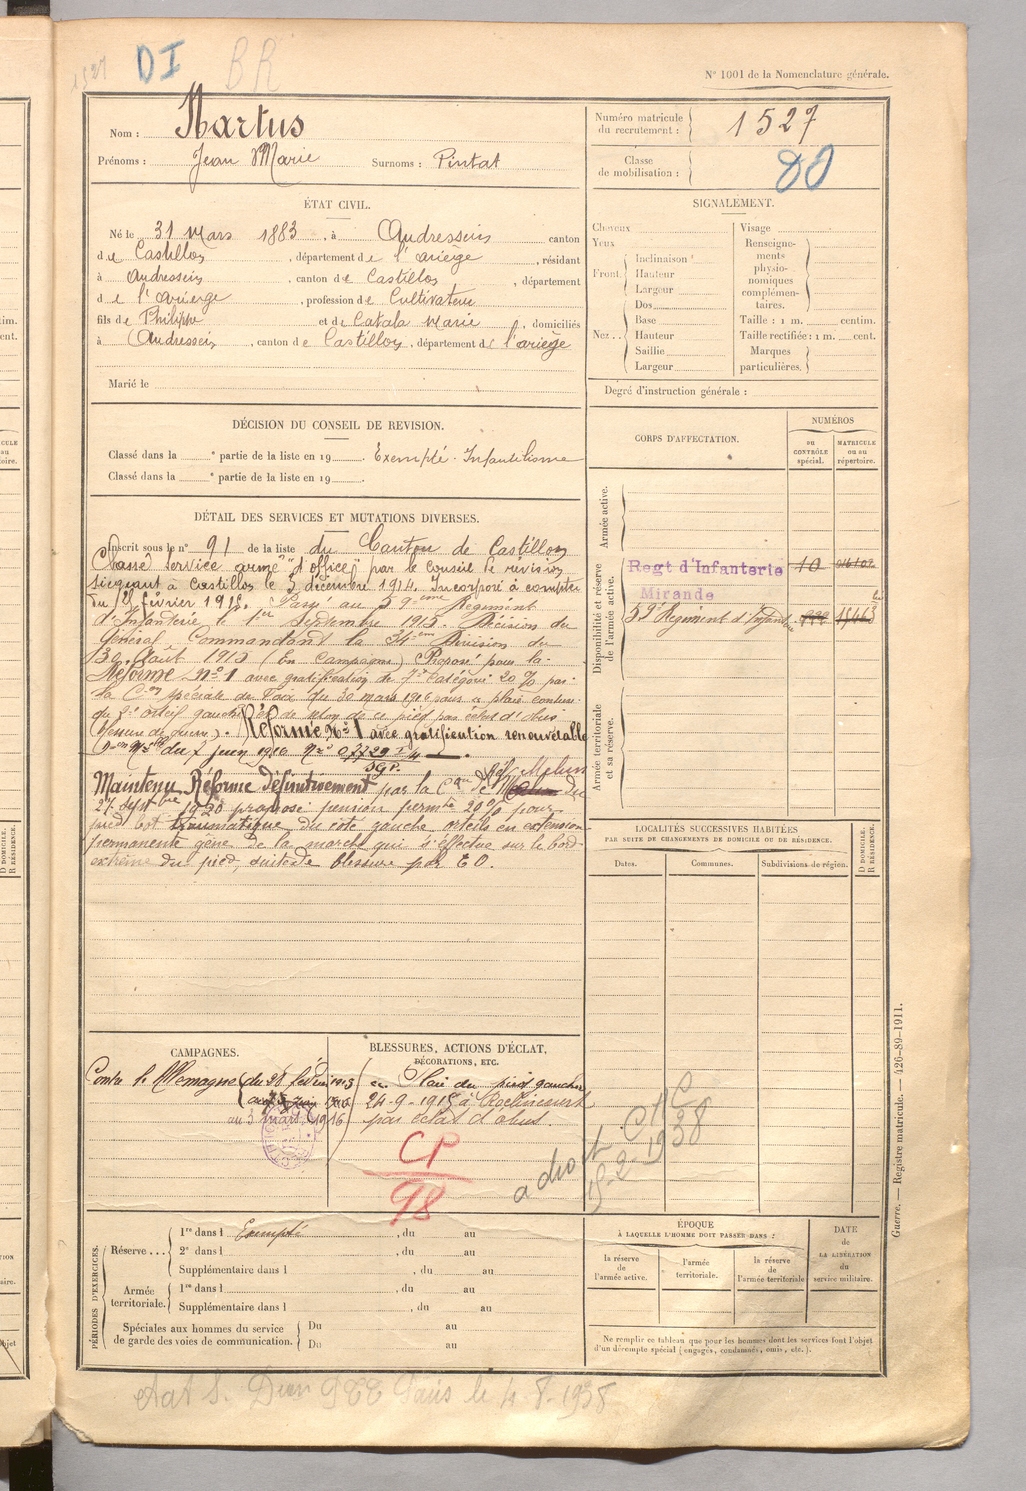 1527 DI BR
N° 1001 de la Nomenclature générale.
Nom : Martus
Prénoms : Jean Marie Surnoms : Pintat
Numéro matricule du recrutement : 1527
Classe de mobilisation : 80
ÉTAT CIVIL.
Né le 31 Mars 1883, à Audressein canton
de Castillon, département de l'ariège, résidant
à Audressein, canton de Castillon, département
de l'ariège, profession de Cultivateur
fils de Philippe et de Catala Marie, domiciliés
à Audressein, canton de Castillon, département de l'ariège
Marié le
SIGNALEMENT.
Cheveux
Yeux
Front. Inclinaison
Hauteur
Largeur
Nez.. Dos
Base
Hauteur
Saillie
Largeur
Visage
Renseigne-
ments
physio-
nomiques
complémen-
taires.
Taille : 1 m. centim.
Taille rectifiée : 1 m. cent.
Marques
particulières.
Degré d'instruction générale :
DÉCISION DU CONSEIL DE REVISION.
Classé dans la e partie de la liste en 19 . Exempté - Infantilisme
Classé dans la e partie de la liste en 19 .
CORPS D'AFFECTATION.
NUMÉROS
DU CONTRÔLE spécial.
MATRICULE ou au répertoire.
Armée active.
Disponibilité et réserve de l'armée active.
Regt d'Infanterie 10
Mirande
59e Régiment d'Infanterie 15463
Armée territoriale et sa réserve.
DÉTAIL DES SERVICES ET MUTATIONS DIVERSES.
Inscrit sous le n° 91 de la liste du Canton de Castillon
Classé service armé "d'office" par le conseil de révision
siégeant à Castillon le 5 décembre 1914. Incorporé à compter
du 28 février 1915. Passé au 59ème Régiment
d'Infanterie le 1er Septembre 1915. Décision du
Général Commandant la 34ème Division du
30 Août 1915 (En campagne) Proposé pour la
Réforme N° 1 avec gratification de 7e catégorie 20 % par
la Con spéciale de Foix du 30 mars 1916 pour plaie contuse
du 2e orteil gauche et de selon de ce pied par éclat d'obus
(blessure de guerre). Réformé N° 1 avec gratification renouvelable
du 7 juin 1916 N° 07729
SGP.
Maintenu Réformé définitivement par la Con de Réf. Melun du
27 Septbre 1920 propose pension permte 20% pour
pied bot traumatique du côté gauche orteils en extension
permanente gêne de la marche qui s'effectue sur le bord
extrême du pied, suite de blessure par E O.
LOCALITÉS SUCCESSIVES HABITÉES
PAR SUITE DE CHANGEMENTS DE DOMICILE OU DE RÉSIDENCE.
Dates. Communes. Subdivisions de région.
D DOMICILE. R RÉSIDENCE.
CAMPAGNES.
Contre l'Allemagne du 28 février 1915
au 3 mars 1916
BLESSURES, ACTIONS D'ÉCLAT,
DÉCORATIONS, ETC.
Plaie du pied gauche
24-9-1915 à Roclincourt
par éclat d'obus.
CP
98
a droit CHC
15-2-1938
PÉRIODES D'EXERCICES.
Réserve... 1re dans l Exempté, du au
2e dans l , du au
Supplémentaire dans l , du au
Armée territoriale. 1re dans l , du au
Supplémentaire dans l , du au
Spéciales aux hommes du service de garde des voies de communication. Du au
Du au
ÉPOQUE
À LAQUELLE L'HOMME DOIT PASSER DANS :
la réserve de l'armée active.
l'armée territoriale.
la réserve de l'armée territoriale
DATE de LA LIBÉRATION du service militaire.
Ne remplir ce tableau que pour les hommes dont les services font l'objet
d'un décompte spécial (engagés, condamnés, omis, etc.).
Guerre. — Registre matricule. — 426-89-1911.
Paris le 4-8-1938